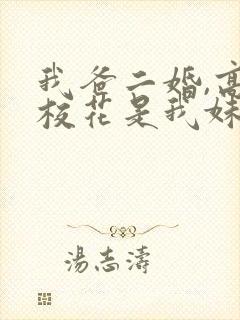 我爸二婚,高
校花是我妹
湯志濤